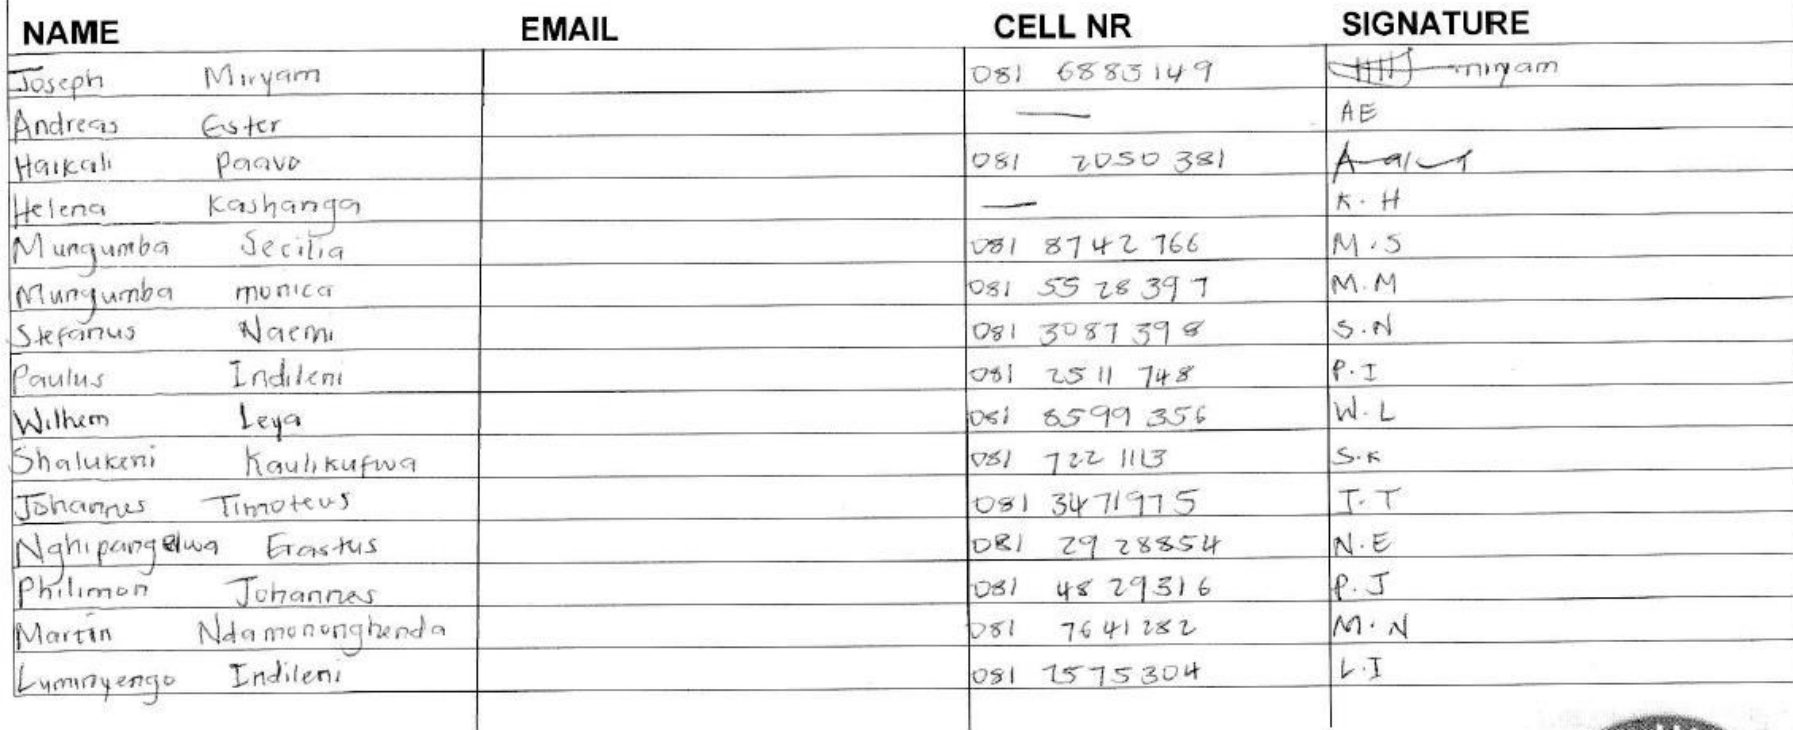 NAME EMAIL CELL NR SIGNATURE
Joseph Miryam 081 6883149 miryam
Andreas Ester — AE
Haikali Paavo 081 2050 381
Helena Kashanga — K. H
Mungumba Secilia 081 8742 766 M.S
Mungumba monica 081 55 28 397 M.M
Stefanus Naemi 081 3087 398 S.N
Paulus Indileni 081 2511 748 P.I
Wilhem Leya 081 8599 356 W.L
Shalukeni Kaulikufwa 081 722 1113 S.K
Johannes Timoteus 081 3471975 J.T
Nghipangelwa Erastus 081 29 28854 N.E
Philimon Johannes 081 48 29316 P.J
Martin Ndamononghenda 081 7641282 M.N
Indileni 081 2575304 L.I